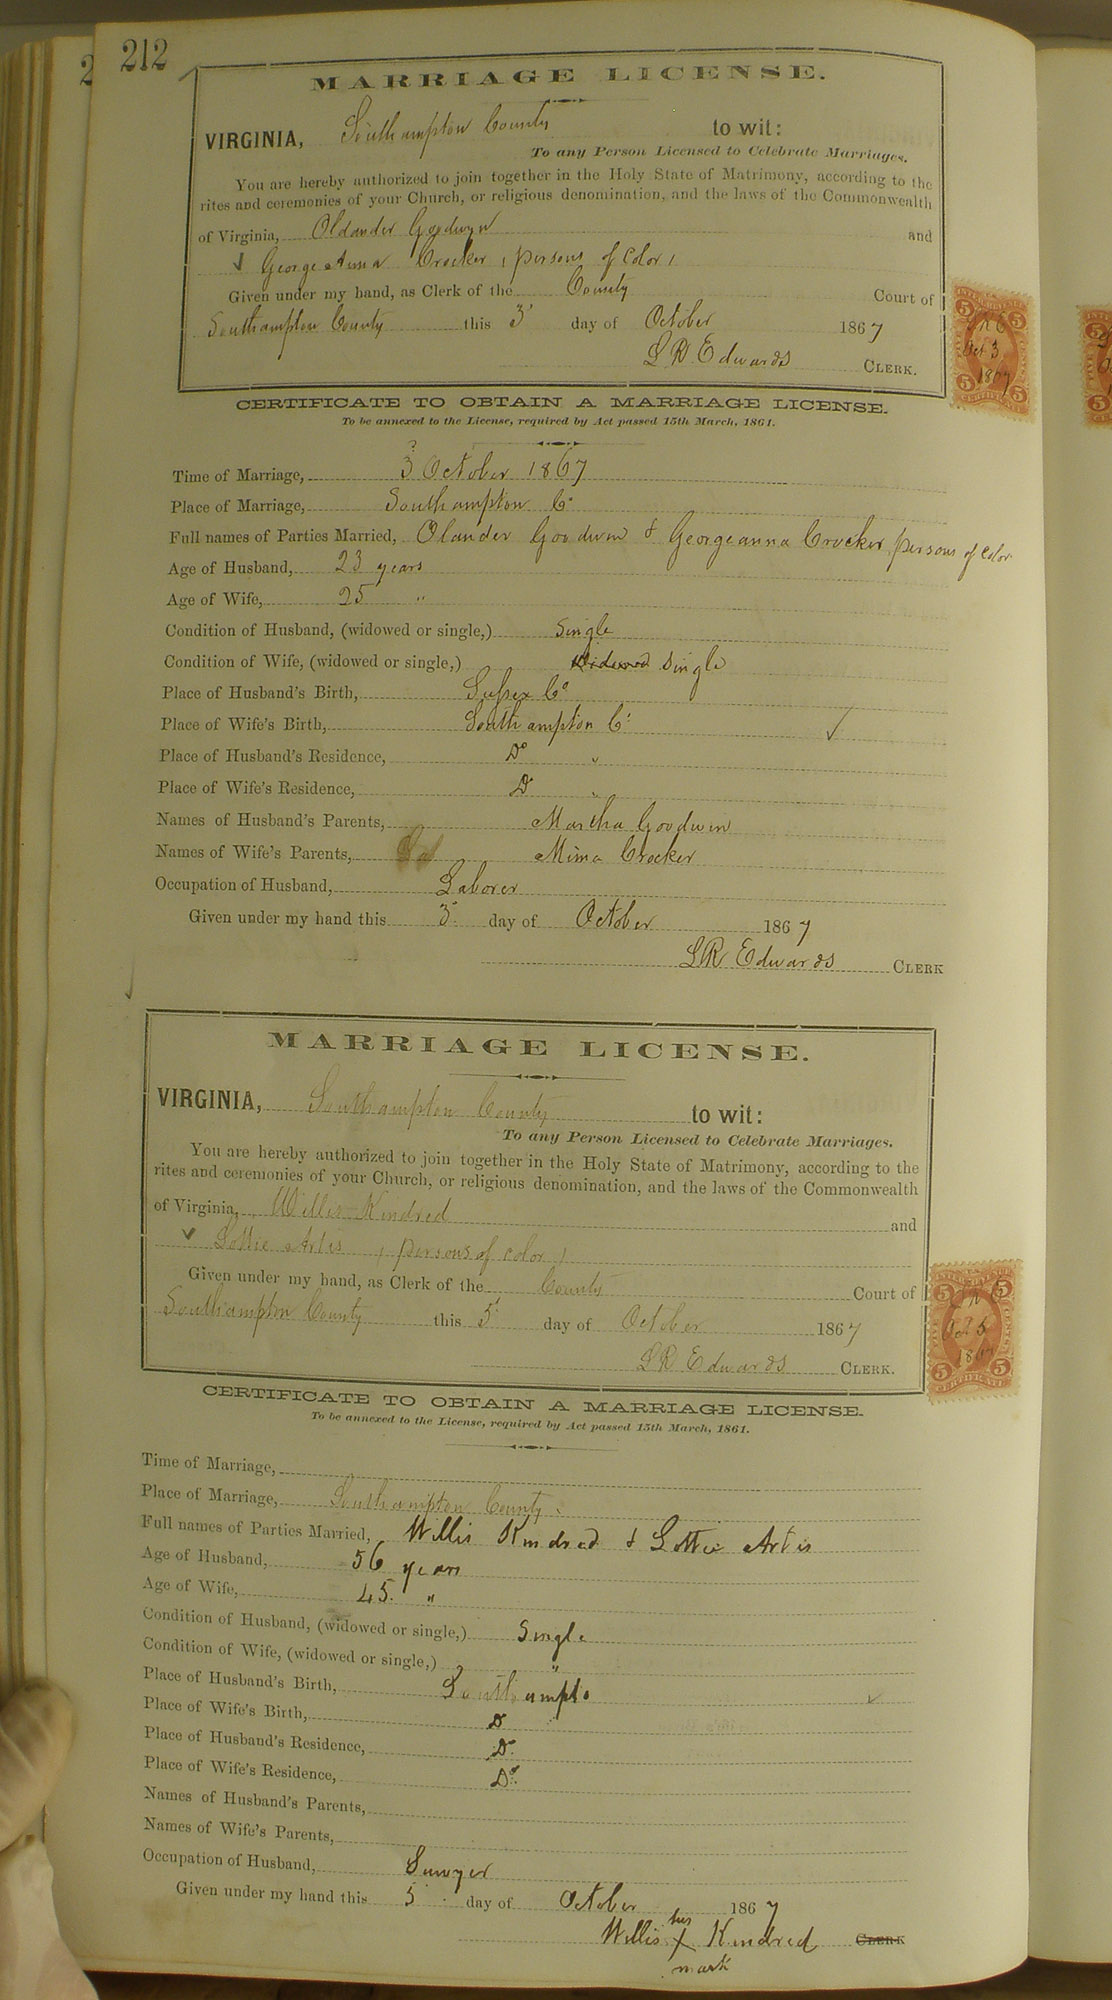 212
MARRIAGE LICENSE.
VIRGINIA, Southampton County to wit:
To any Person Licensed to Celebrate Marriages.
You are hereby authorized to join together in the Holy State of Matrimony, according to the
rites and ceremonies of your Church, or religious denomination, and the laws of the Commonwealth
of Virginia, Oldander Goodwyn and
✓ George Anna Crocker (persons of color)
Given under my hand, as Clerk of the County Court of
Southampton County this 3 day of October 1867
LR Edwards CLERK.
CERTIFICATE TO OBTAIN A MARRIAGE LICENSE.
To be annexed to the License, required by Act passed 15th March, 1861.
Time of Marriage, 3 October 1867
Place of Marriage, Southampton Co
Full names of Parties Married, Olander Goodwin & Georgeanna Crocker persons of color
Age of Husband, 23 years
Age of Wife, 25 "
Condition of Husband, (widowed or single,) Single
Condition of Wife, (widowed or single,) Widowed Single
Place of Husband's Birth, Sussex Co
Place of Wife's Birth, Southampton Co ✓
Place of Husband's Residence, Do "
Place of Wife's Residence, Do "
Names of Husband's Parents, Martha Goodwin
Names of Wife's Parents, Mima Crocker
Occupation of Husband, Laborer
Given under my hand this 3 day of October 1867
LR Edwards CLERK
MARRIAGE LICENSE.
VIRGINIA, Southampton County to wit:
To any Person Licensed to Celebrate Marriages.
You are hereby authorized to join together in the Holy State of Matrimony, according to the
rites and ceremonies of your Church, or religious denomination, and the laws of the Commonwealth
of Virginia, Willis Kindred and
✓ Lottie Artis (persons of color)
Given under my hand, as Clerk of the County Court of
Southampton County this 5 day of October 1867
LR Edwards CLERK.
CERTIFICATE TO OBTAIN A MARRIAGE LICENSE.
To be annexed to the License, required by Act passed 15th March, 1861.
Time of Marriage,
Place of Marriage, Southampton County.
Full names of Parties Married, Willis Kindred & Lottie Artis
Age of Husband, 56 years
Age of Wife, 45 "
Condition of Husband, (widowed or single,) Single
Condition of Wife, (widowed or single,) "
Place of Husband's Birth, Southampto ✓
Place of Wife's Birth, Do
Place of Husband's Residence, Do
Place of Wife's Residence, Do
Names of Husband's Parents,
Names of Wife's Parents,
Occupation of Husband, Sawyer
Given under my hand this 5 day of October 1867
his
Willis X Kindred CLERK
mark